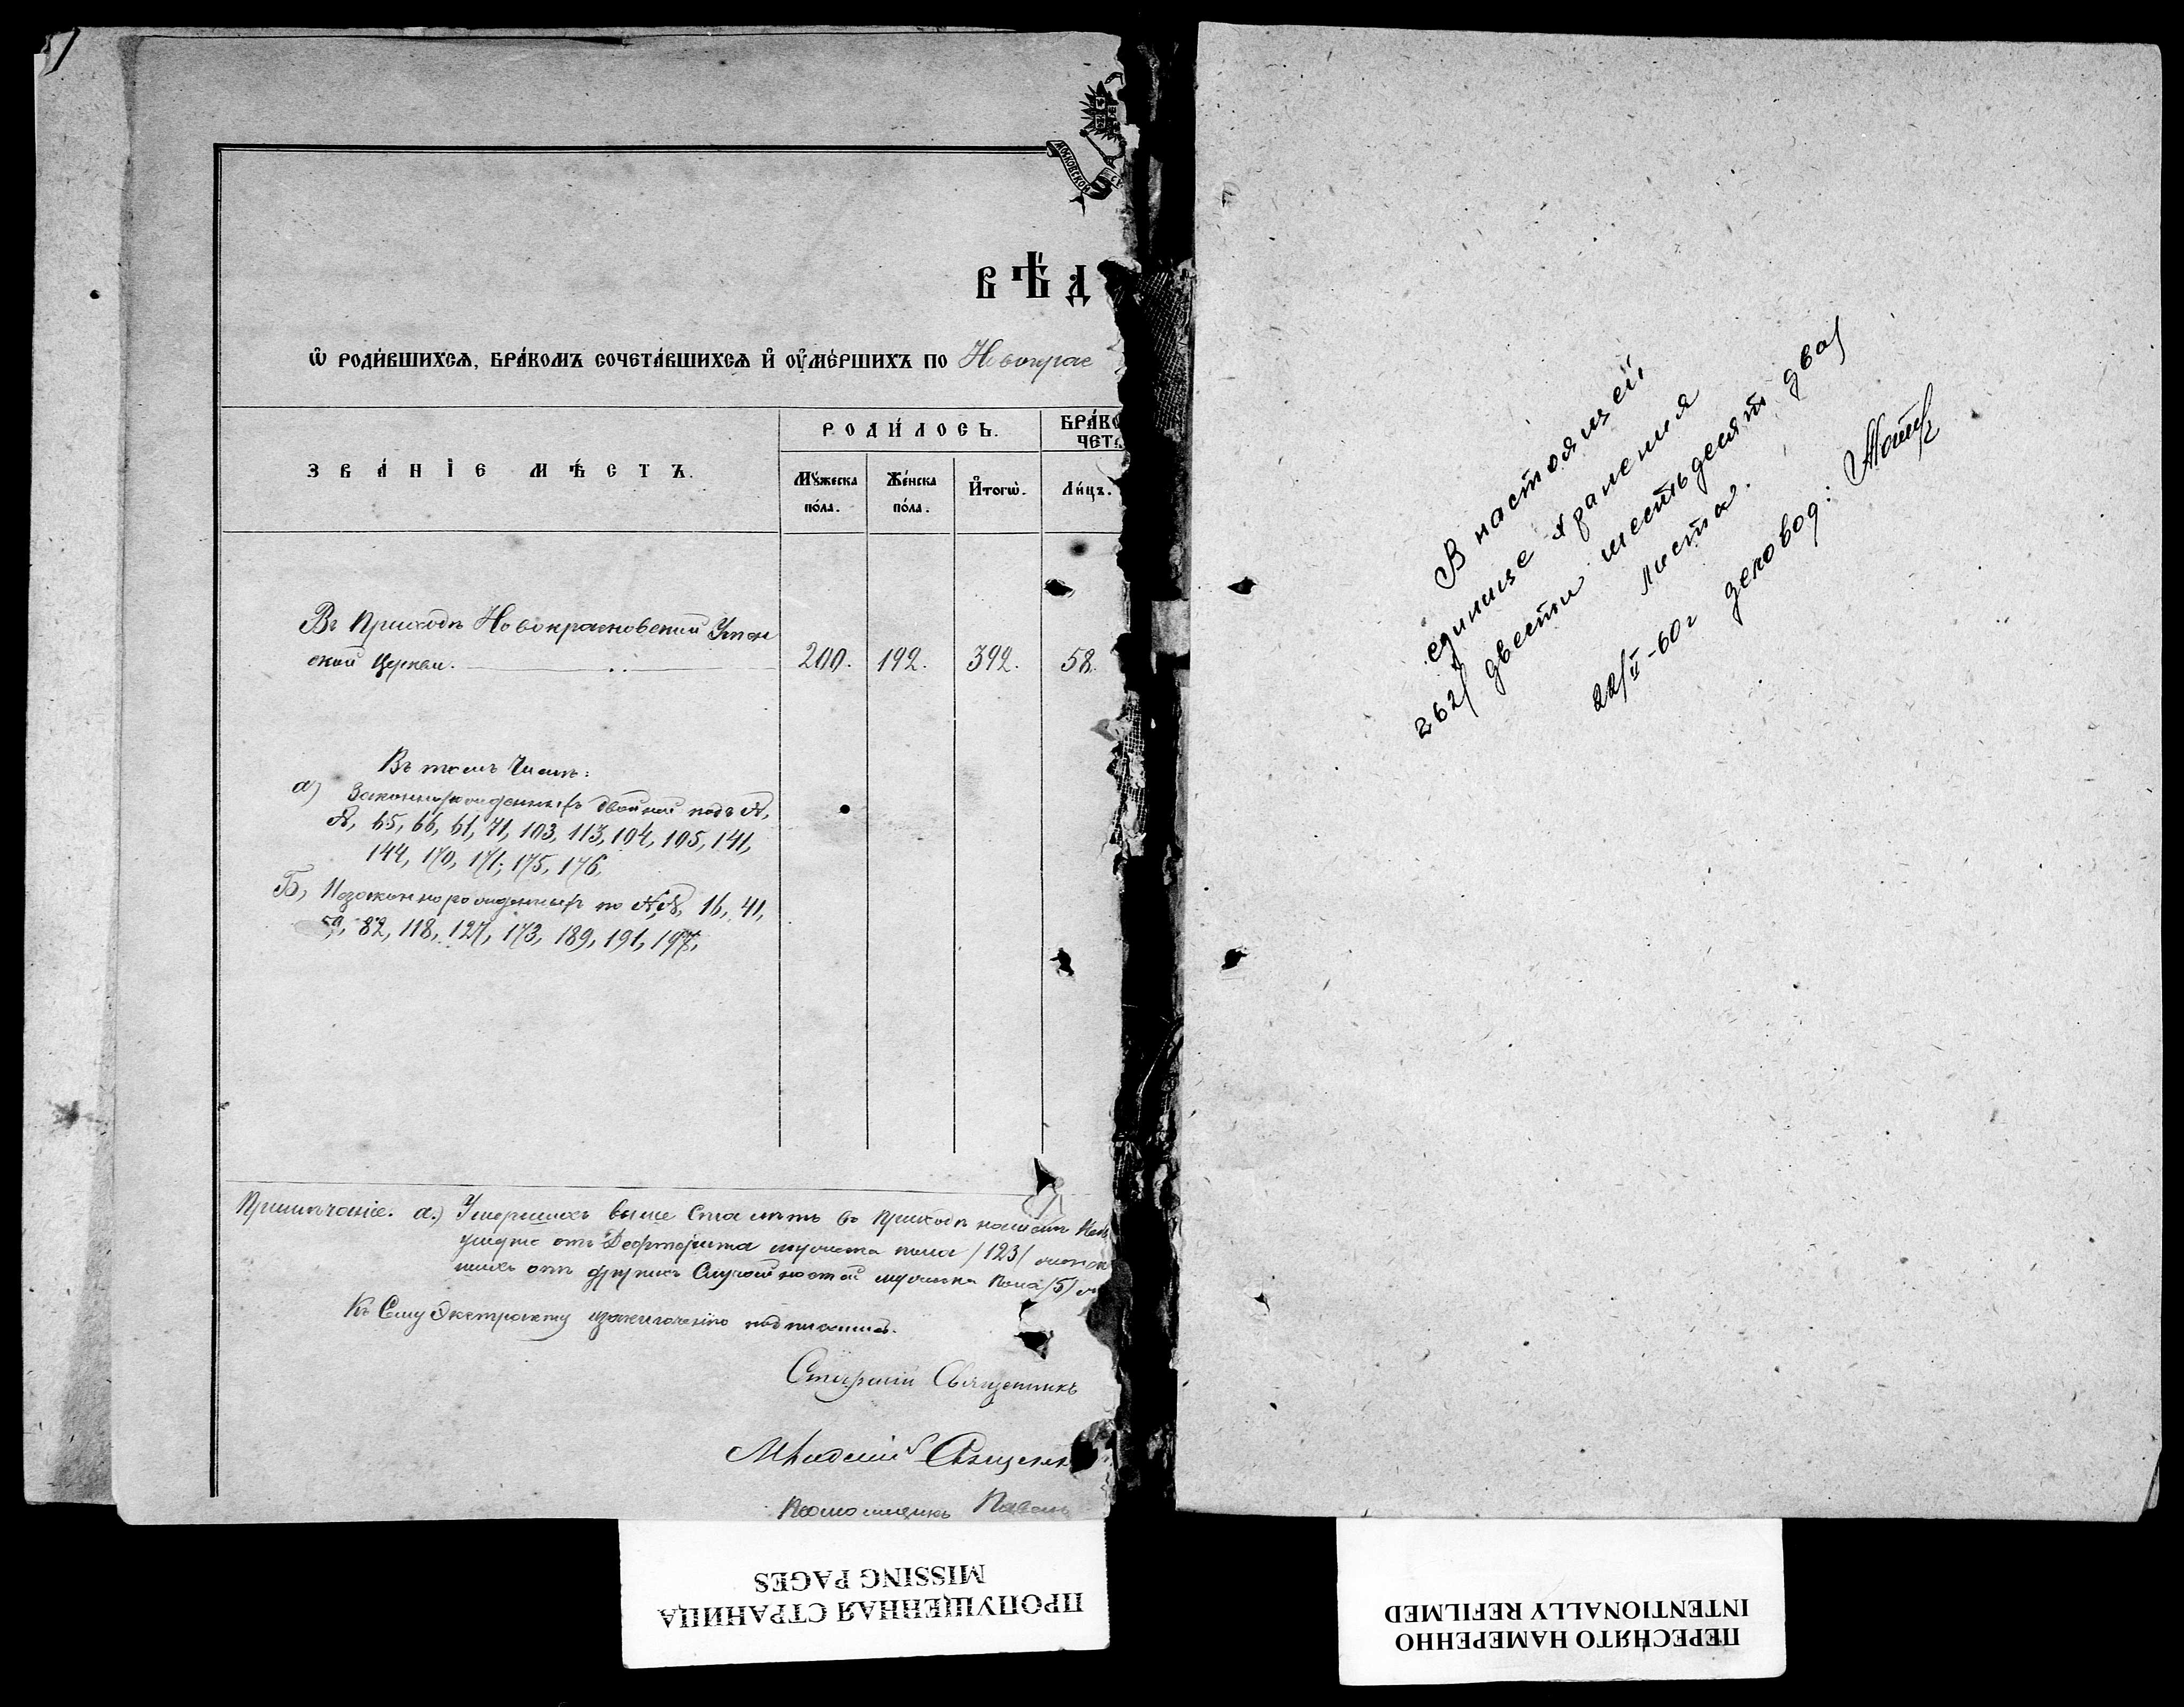 МОСКОВСКОЙ
ВѢД
Ѡ РОДИ́ВШИХСѦ, БРА́КОМЪ СОЧЕТА́ВШИХСѦ И҆ ОУ҆МЕ́РШИХЪ ПО Новокрас
ЗВА́НІЕ МѢ́СТЪ.
РОДИ́ЛОСЬ.
БРА́КО
ЧЕТА
Мꙋ́жеска по́ла.
Же́нска по́ла.
И҆тогѡ̀.
Ли́цъ.
Въ Приходѣ Новокрасновской Успен
ской Церкви.
200. 192. 392. 58.
Въ томъ Числѣ:
а) Законнорожденныхъ двойней подъ №
№, 65, 66, 61, 71, 103, 113, 104, 105, 141,
144, 170, 171, 175, 176.
Б, Незаконнорожденныхъ по №№, 16, 41,
59, 82, 118, 127, 173, 189, 191, 197,
Примѣчаніе. а.) Умершихъ выше Ста лѣтъ въ Приходѣ нашемъ
отъ Дефтерита мужеска пола /123/
отъ другихъ Случайностей мужеска Пола /5/
Къ Сему Экстракту приложенію подписались.
Старшій Священникъ
Младшій Священ
Помощникъ Павелъ
В настоящей
единице хранения
262/ двести шестьдесят два/
листа.
22/II-60г деловод:
ПРОПУЩЕННАЯ СТРАНИЦА
MISSING PAGES
ПЕРЕСНЯТО НАМЕРЕННО
INTENTIONALLY REFILMED